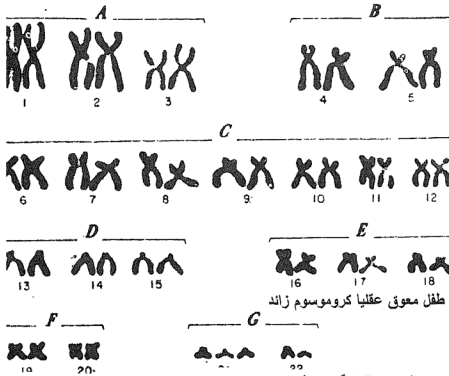 A B
1 2 3 4 5
C
6 7 8 9 10 11 12
D E
13 14 15 16 17 18
طفل معوق عقليا كروموسوم زائد
F G
19 20 21 22